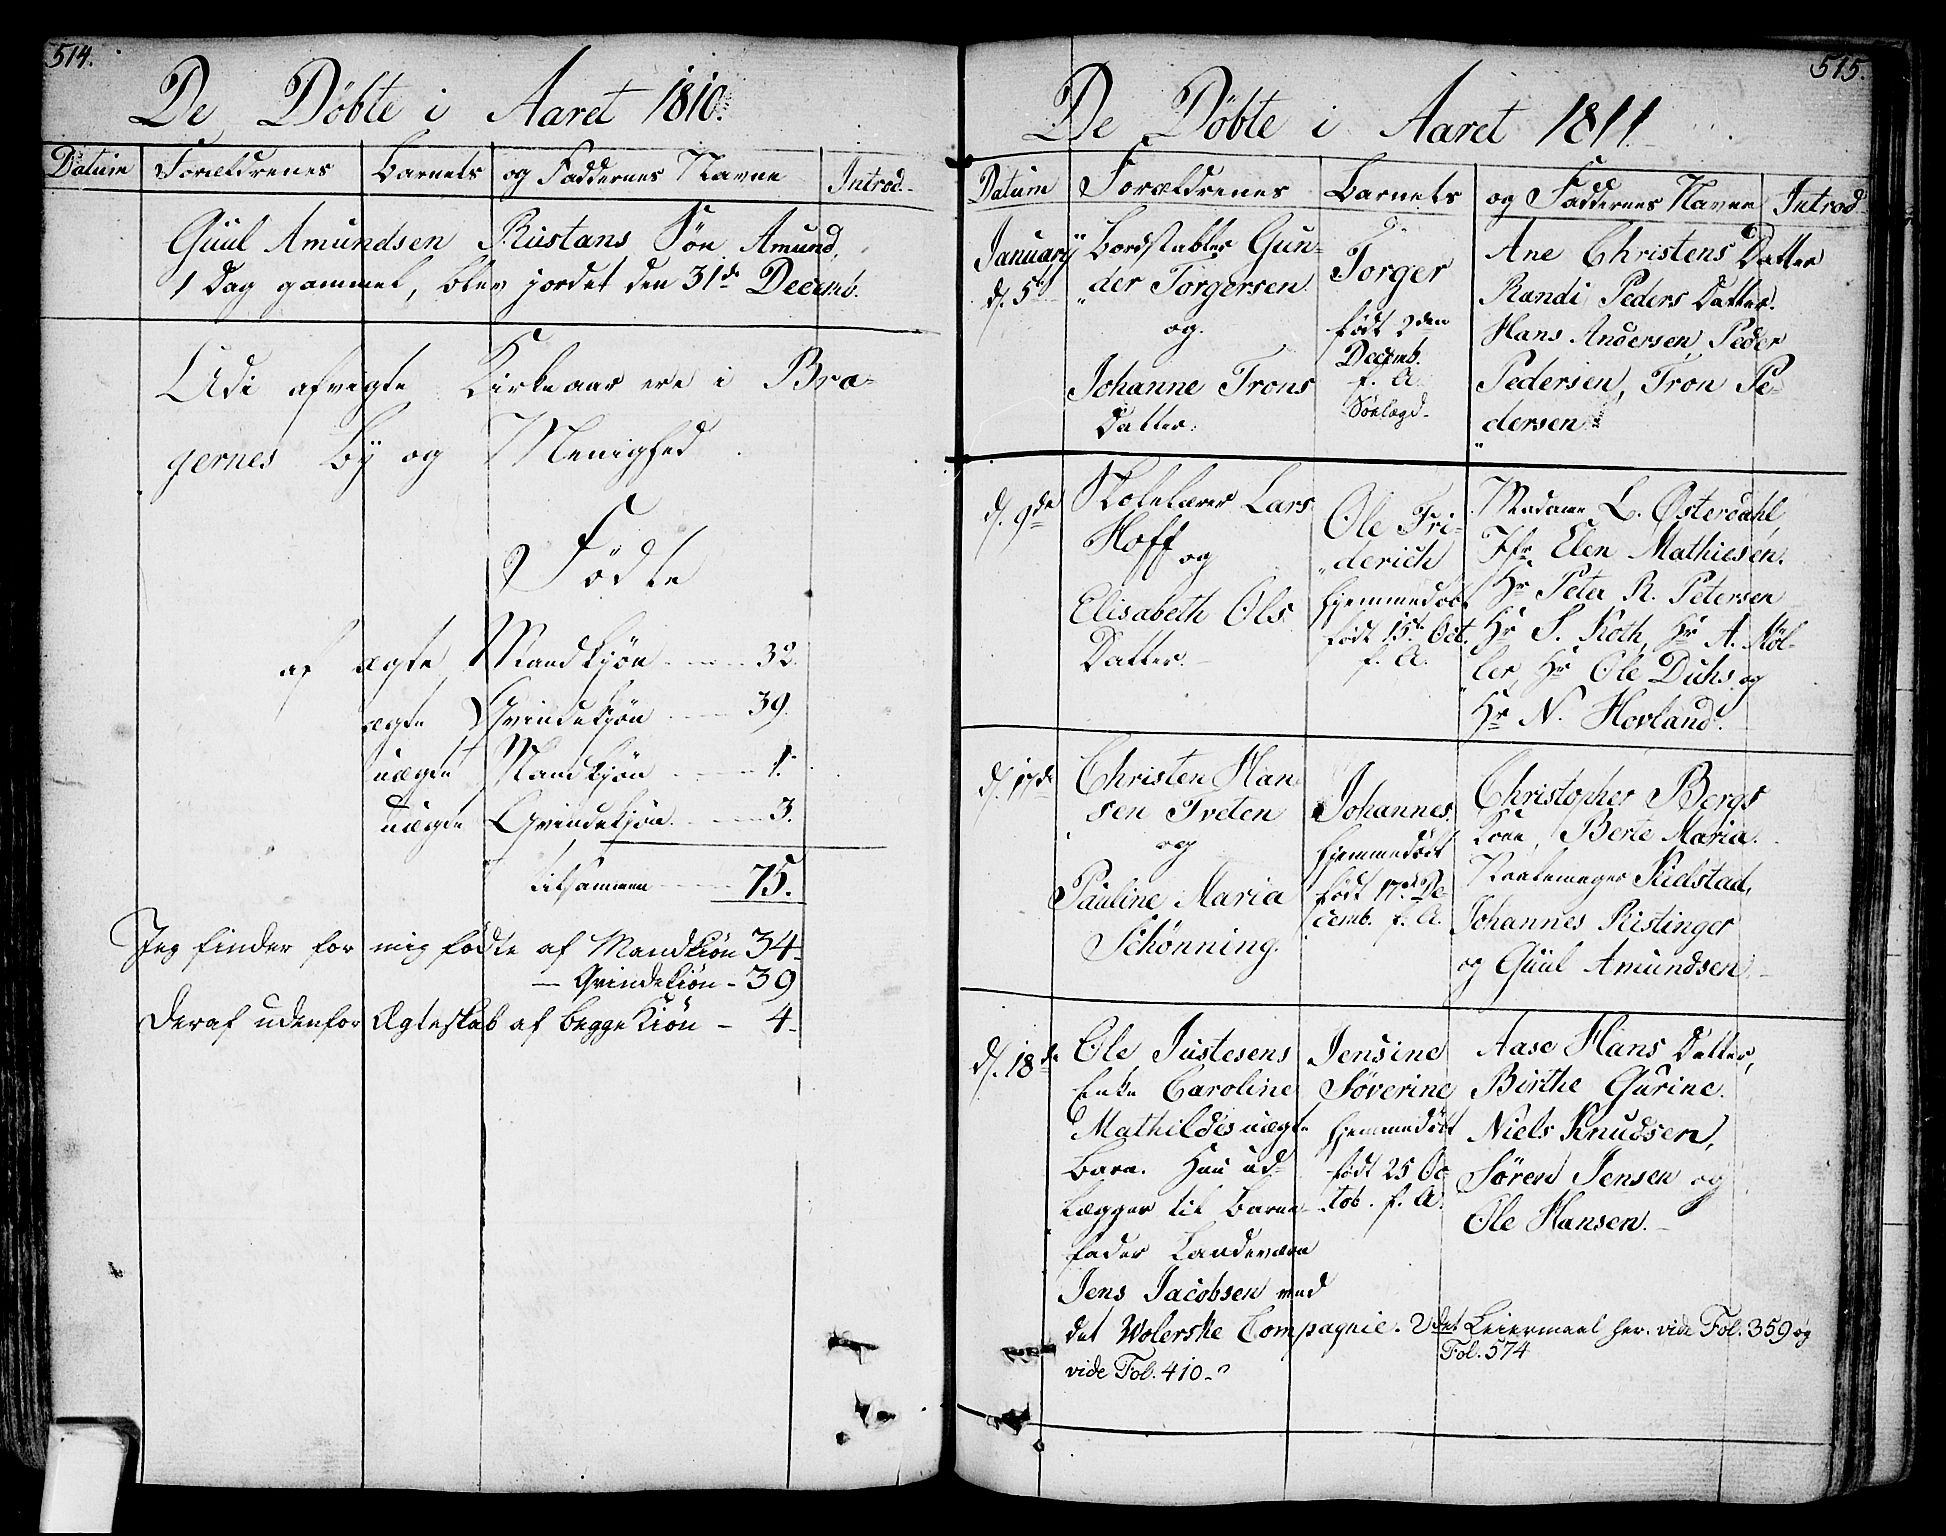 514.
De Döbte i Aaret 1810.
Datum Forældrenes Barnets og Faddernes Navne Introd.
Guul Amundsen Rustans Søn Amund,
1 Dag gammel, blev jordet den 31d Decemb.
Udi afvigte Kirkeaar ere i Bra-
gernes By og Menighed
Födte
af ægte Mandkjøn 32.
ægte Qvindekjøn 39.
uægte Mandkjøn 1.
uægte Qvindekjøn 3.
tilsammen 75.
Jeg finder for mig födte af Mandkiön 34
— Qvindekiön - 39
Deraf udenfor Ægteskab af begge Kiön - 4-
515.
De Döbte i Aaret 1811.
Datum Forældrenes Barnets og Faddernes Navne Introd.
January
d. 5t
Bordstabler Gun-
der Torgersen
og
Johanne Trons
Datter.
Torger
født 2den
Decemb.
f. A.
Söelægd.
Ane Christens Datter
Randi Peders Datter.
Hans Andersen, Peder
Pedersen, Tron Pe-
dersen.
d. 9de
Skolelærer Lars
Hoff og
Elisabeth Ols
Datter.
Ole Fri-
derich
hjemmedöbt
födt 15t Oct.
f. A.
Madame L. Østerdahl,
Jfr Elen Mathiesen.
Hr Peter R. Petersen
Hr S. Roth, Hr A. Möl-
ler, Hr Ole Duhs og
Hr N. Hovland.
d. 17de
Christen Han-
sen Tveten
og
Pauline Maria
Schönning.
Johannes.
hjemmedöbt
födt 17d De-
cemb. f. A.
Christopher Bergs
Kone, Berte Maria.
Kielstad,
Johannes Ristinger
og Guul Amundsen.
d. 18de
Ole Justesens
Enke Caroline
Mathildis uægte
Barn. Hun ud-
lægger til Barne-
fader Landeværn
Jens Jacobsen ved
det Wolerske Compagnie. 2det Leiermaal her. vide Fol. 359 og
vide Fol. 410. Fol. 574
Jensine
Söverine
hjemmedöbt
födt 25 Oc-
tob. f. A.
Aase Hans Datter,
Birthe Gurine.
Niels Knudsen,
Sören Jensen og
Ole Hansen.